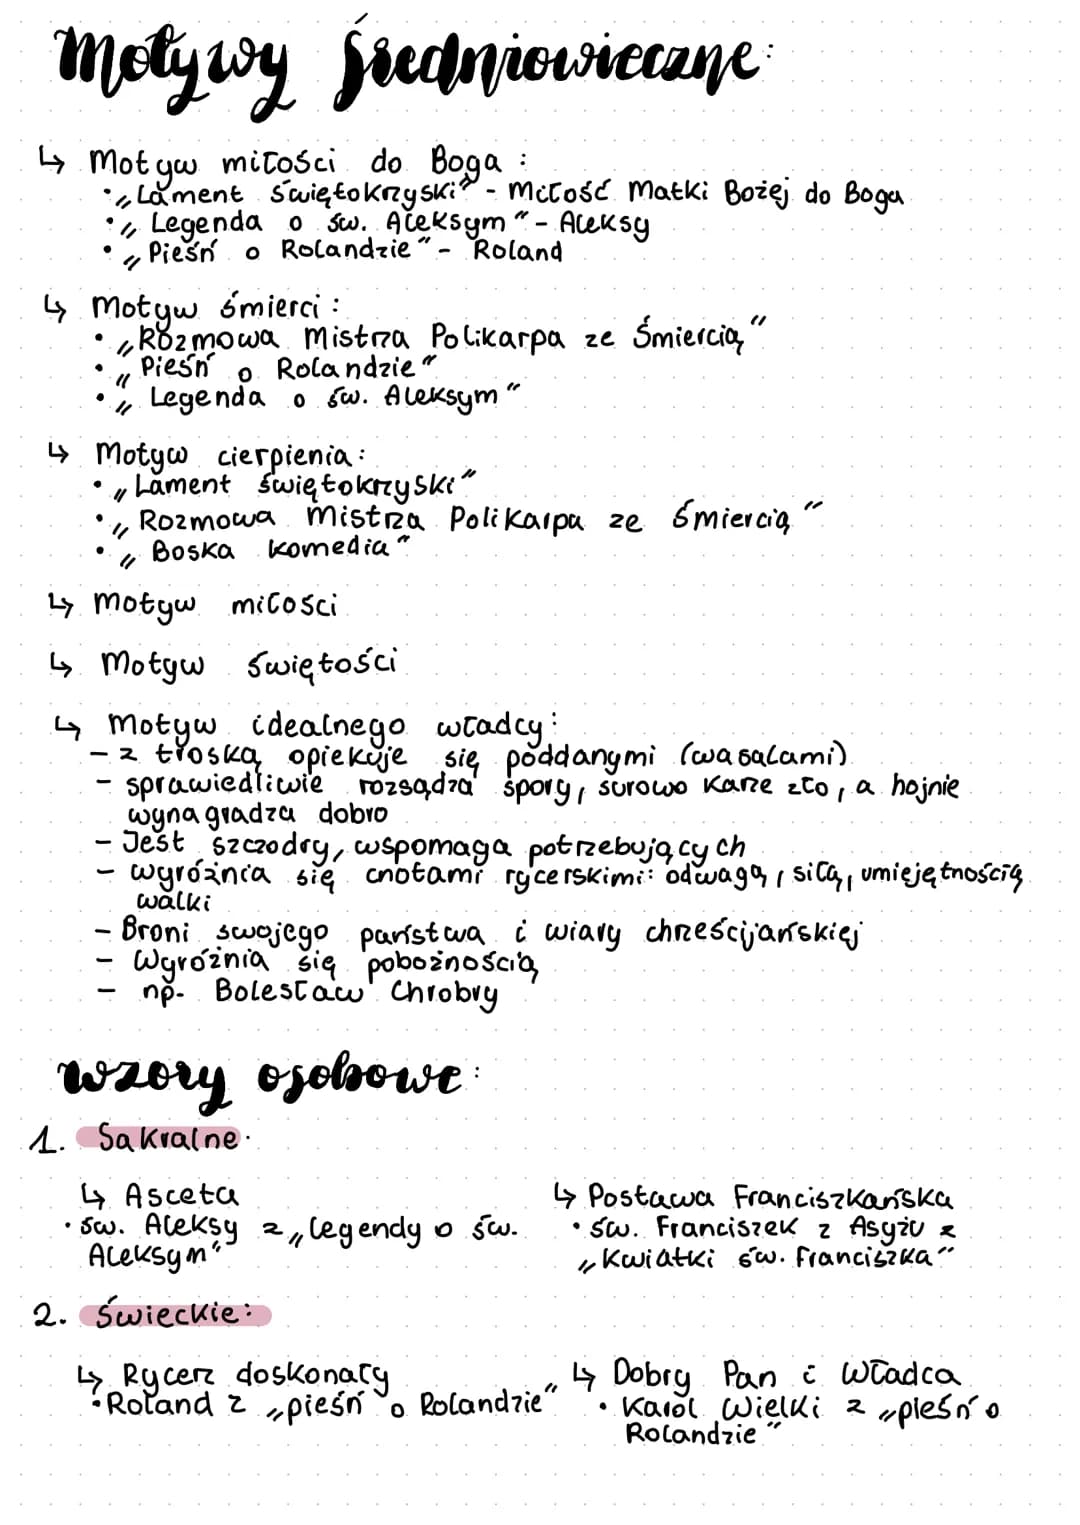 Motywy średniowieczne:
↳ Motyw miłości do Boga :
• „Lament Świętokrzyski" - Miłość Matki Bożej do Boga
• „Legenda o św. Aleksym" - Aleksy
• „Pieśń o Rolandzie" - Roland
↳ Motyw śmierci :
• „Rozmowa Mistrza Polikarpa ze Śmiercią"
• „Pieśń o Rolandzie"
• „Legenda o św. Aleksym"
↳ Motyw cierpienia :
• „Lament świętokrzyski"
• „Rozmowa Mistrza Polikarpa ze śmiercią"
• „Boska komedia"
↳ Motyw miłości
↳ Motyw świętości
↳ Motyw idealnego władcy :
- z troską opiekuje się poddanymi (wasalami)
- sprawiedliwie rozsądza spory, surowo karze zło, a hojnie
wynagradza dobro
- Jest szczodry, wspomaga potrzebujących
- wyróżnia się cnotami rycerskimi: odwagą, siłą, umiejętnością
walki
- Broni swojego państwa i wiary chrześcijańskiej
- Wyróżnia się pobożnością
- np. Bolesław Chrobry
Wzory osobowe :
1. Sakralne
↳ Asceta
• św. Aleksy z „Legendy o św.
Aleksym"
↳ Postawa Franciszkańska
• św. Franciszek z Asyżu z
„Kwiatki św. Franciszka"
2. Świeckie :
↳ Rycerz doskonały
• Roland z „pieśń o Rolandzie"
↳ Dobry Pan i Władca
• Karol Wielki z „pieśń o
Rolandzie"